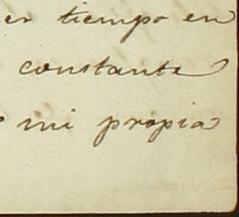 er tiempo en
constante
mi propia